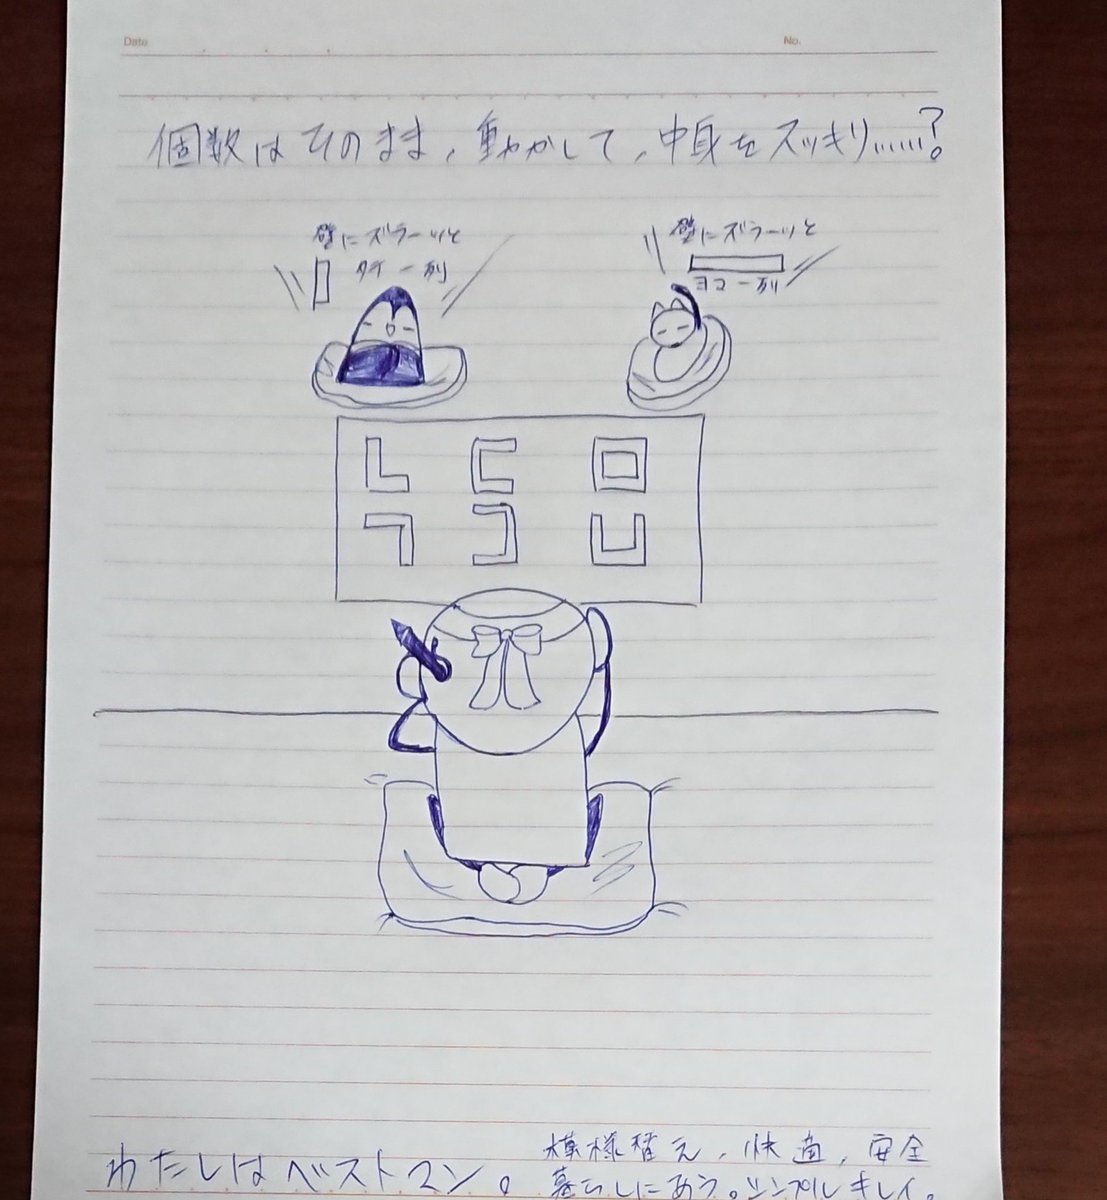 Date
No.
個数はそのまま、動かして、中身をスッキリ……?
壁にズラーッと
タテ一列
壁にズラーッと
ヨコ一列
わたしはベストマン。
模様替え、快適、安全
暮らしにあう。シンプルキレイ。